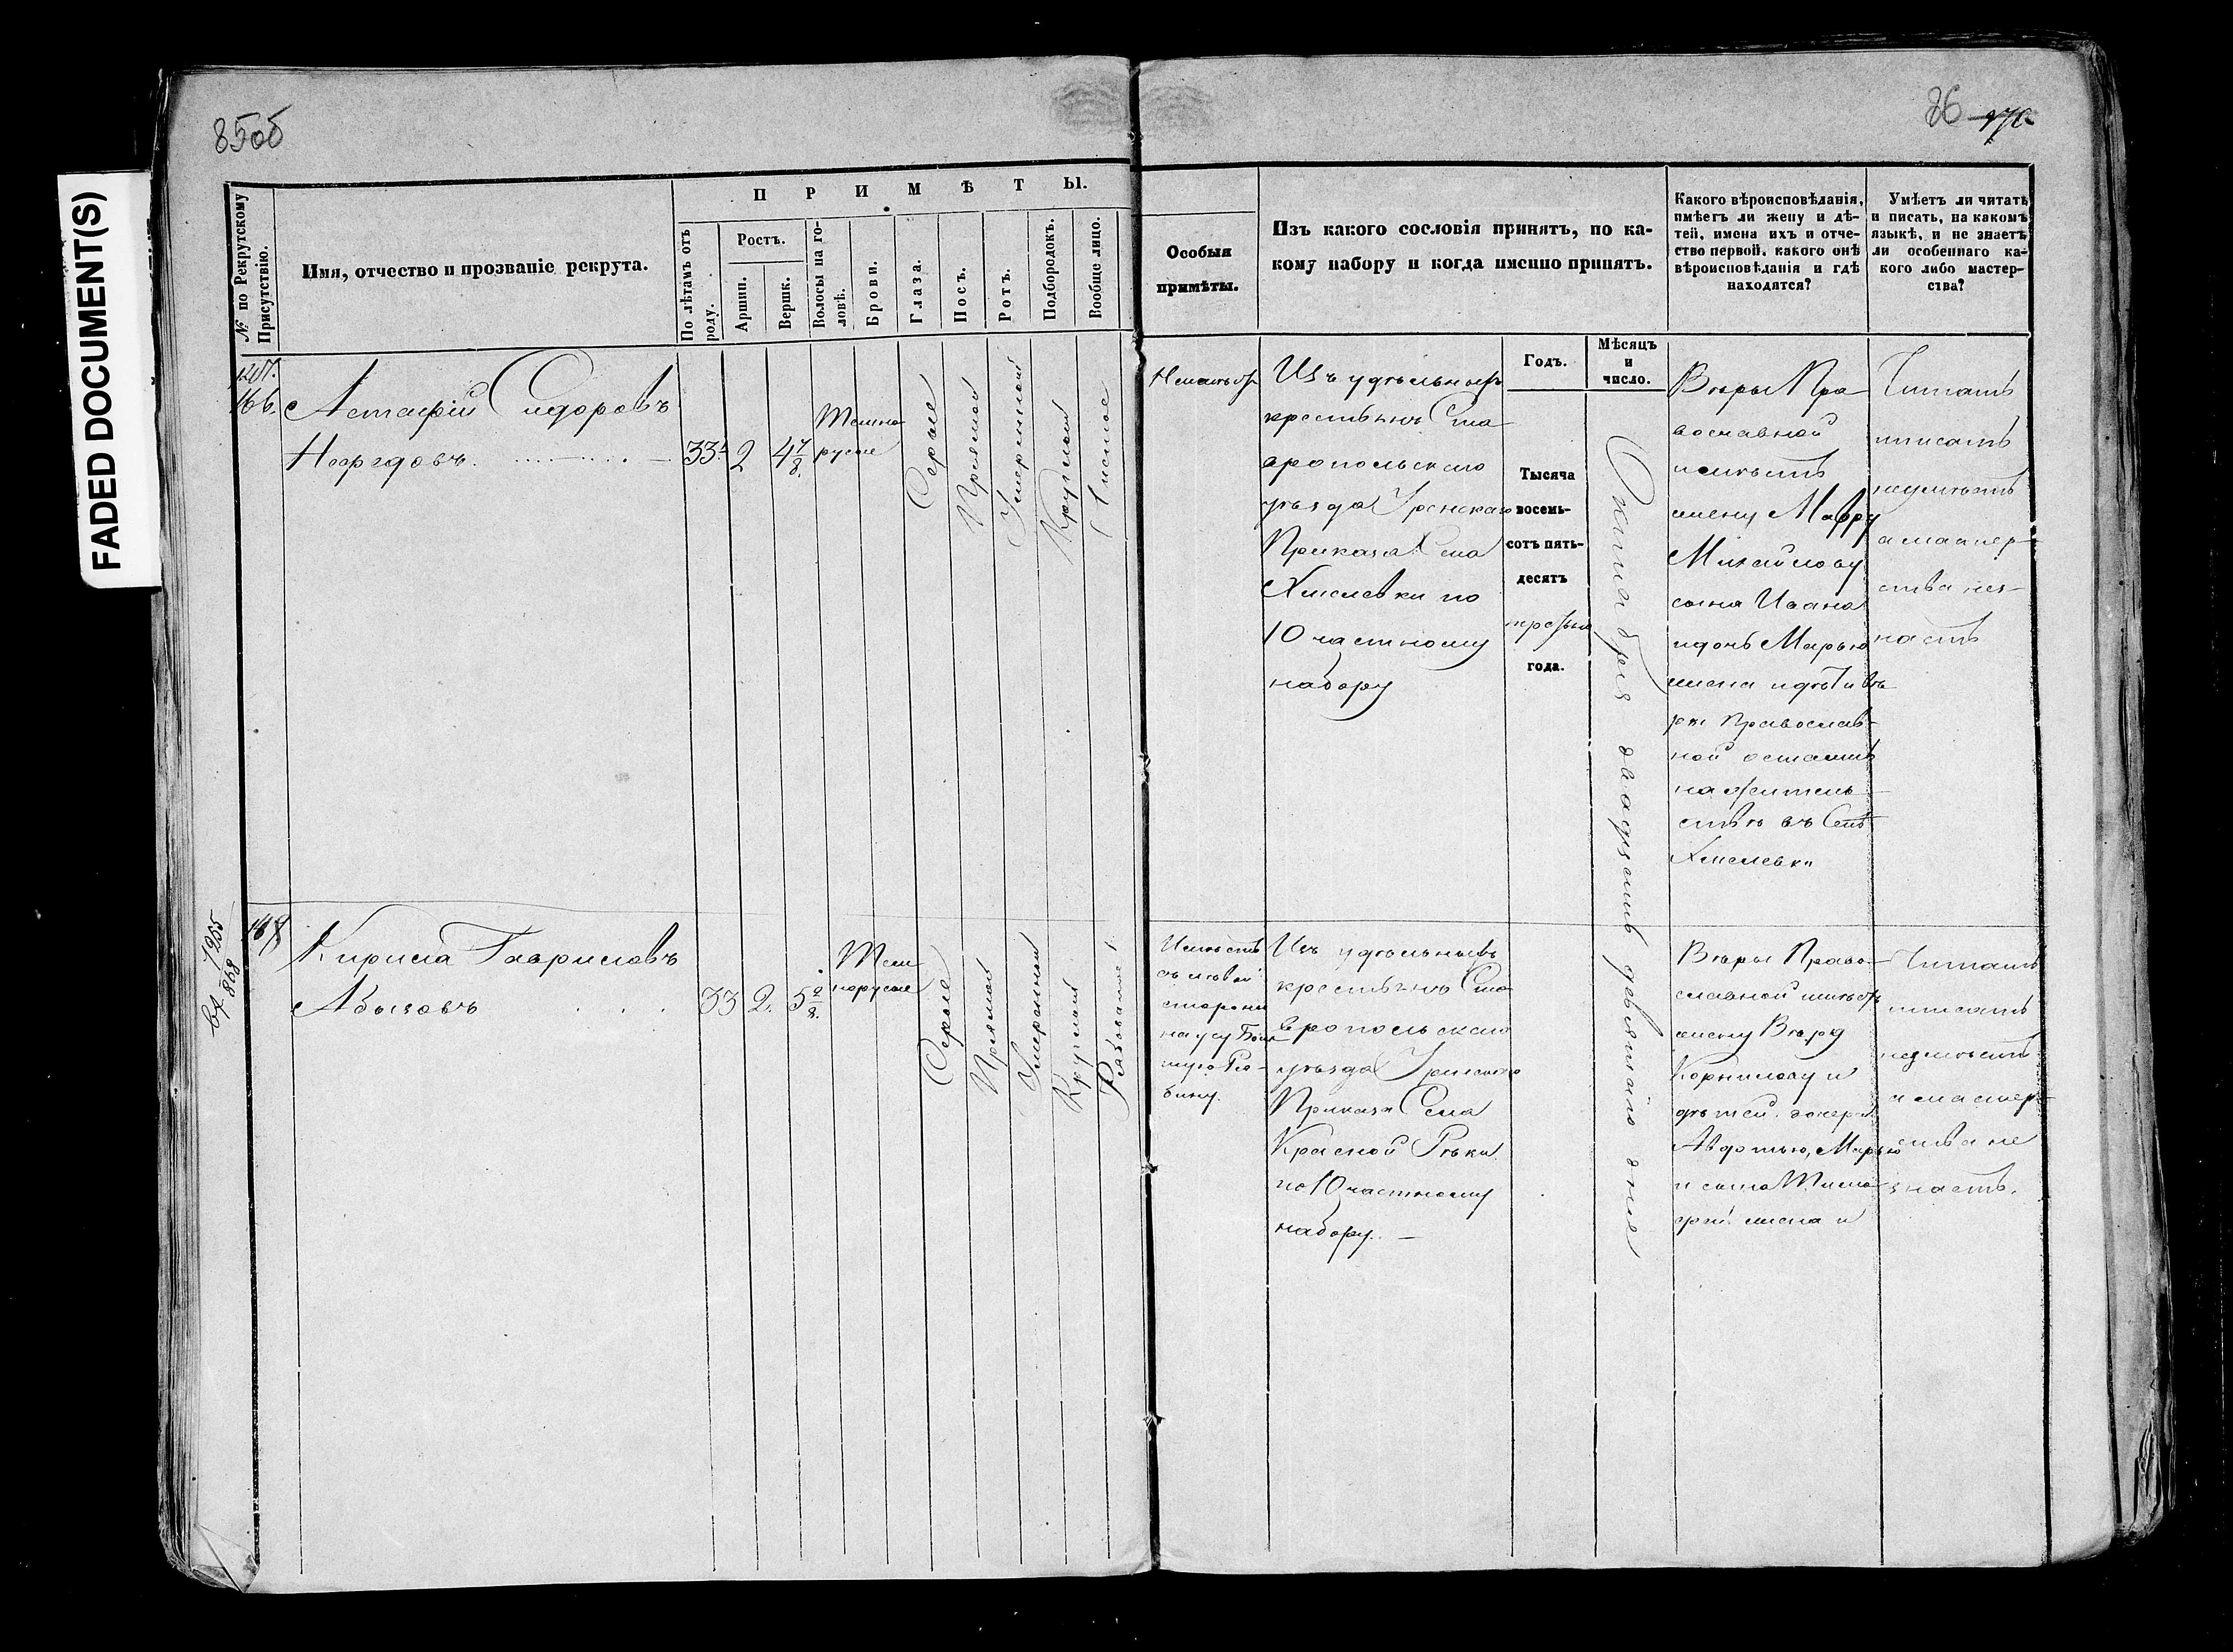 FADED DOCUMENT(S)
85об
86
№ по Рекрутскому Присутствію.
Имя, отчество и прозваніе рекрута.
ПРИМѢТЫ.
По лѣтамъ отъ роду.
Ростъ.
Аршин.
Вершк.
Волосы на головѣ.
Брови.
Глаза.
Носъ.
Ротъ.
Подбородокъ.
Вообще лицо.
Особыя
примѣты.
Изъ какого сословія принятъ, по ка-
кому набору и когда именно принятъ.
Какого вѣроисповѣданія,
имѣетъ ли жену и дѣ-
тей, имена ихъ и отче-
ство первой, какого онѣ
вѣроисповѣданія и гдѣ
находятся?
Умѣетъ ли читать
и писать, на какомъ
языкѣ, и не знаетъ
ли особеннаго ка-
кого либо мастер-
ства?
Годъ.
Мѣсяцъ
и
число.
166.
Астафій Сидоровъ
33
2
4 7/8
Темно
русые
Сѣрые
Прямой
Умеренной
Круглой
Чистое
Изъ удѣльныхъ
крестьянъ Ста
вропольскаго
уѣзда Уренскаго
Приказа Села
Хмелевки по
10 частному
набору
Тысяча
восемь-
сотъ пять-
десятъ
третьяго
года.
Октября двадцать девятаго дня
Вѣры Пра
вославной
имѣетъ
жену Мавру
Михайлову
сына Ивана
и дочь Марью
жена и дѣти вѣ
ры Православ-
ной
на житель-
ствѣ въ Селѣ
Хмелевки
Читать
писать
неумѣетъ
а мастер-
ства нез-
наетъ
1255
858
Кирила Гавриловъ
33
2.
5 2/8.
Тем
норусые
Сѣрые
Прямой
Умеренной
Круглый
Рябоватое
Имѣетъ
съ лѣвой
стороны
Изъ удѣльныхъ
крестьянъ Ста
вропольскаго
уѣзда Уренскаго
Приказа Села
Красной Рѣки
по 10 частному
набору. —
Вѣры Право-
славной имѣетъ
жену Вѣру
Корнилову и
дѣтей. дочерей
Авдотью, Марью
и сына Тимо
фей. жена и
Читать
писать
неумѣетъ
а мастер-
ства не
знаетъ.